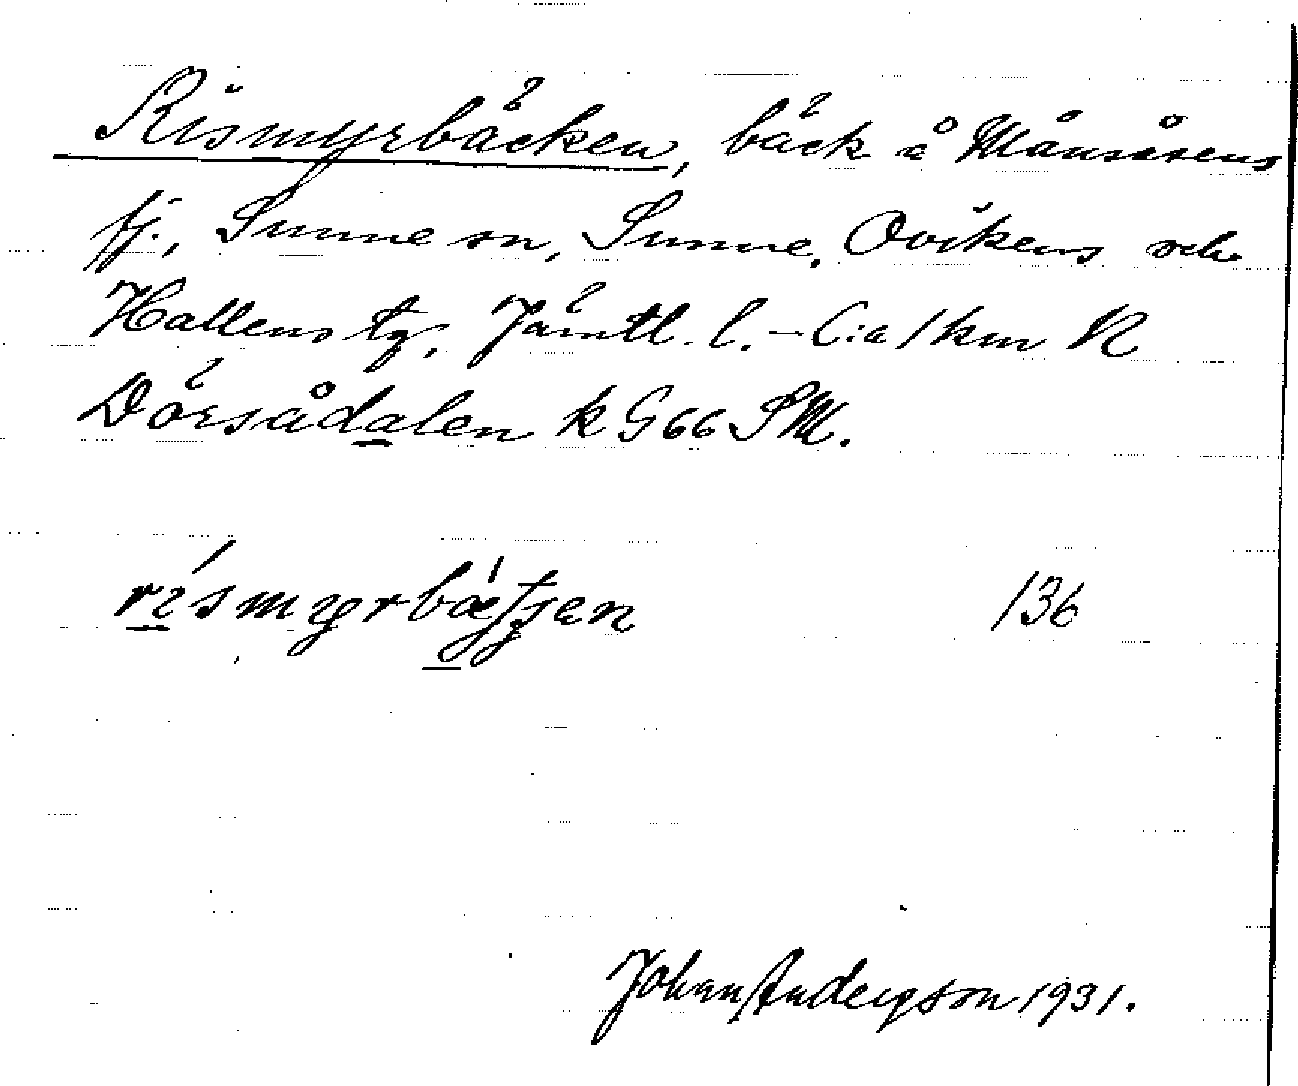 Rismyrbäcken, bäck å Månsåsens
fj., Sunne sn, Sunne, Ovikens och
Hallens tg, Jämtl. l. – C:a 1 km N
Dörsådalen k G 66 SM.
rismyrbæʃʃen 136
Johan Anderson 1931.